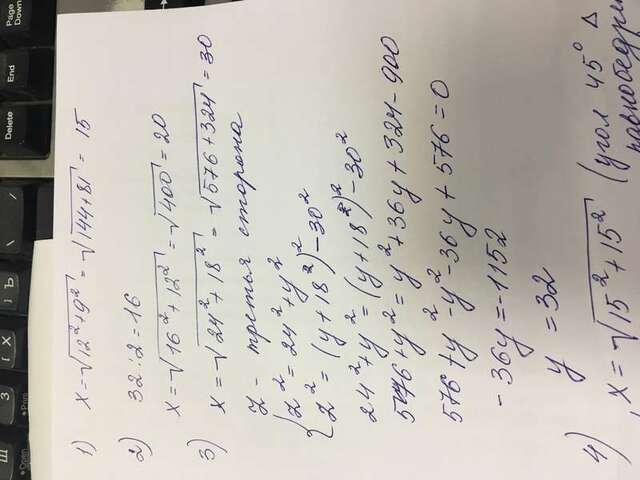 Delete End Page Down
Open Print
1) x = √12²+9² = √144+81 = 15
2) 32:2=16
x = √16²+12² = √400 = 20
3) x = √24²+18² = √576+324 = 30
Z - третья сторона
{ Z² = 24²+y²
Z² = (y+18²)²-30²
24²+y² = (y+18²)²-30²
576+y² = y²+36y+324-900
576+y²-y²-36y+576=0
-36y=-1152
y = 32
4) x = √15²+15² (угол 45° Δ
равнобедре